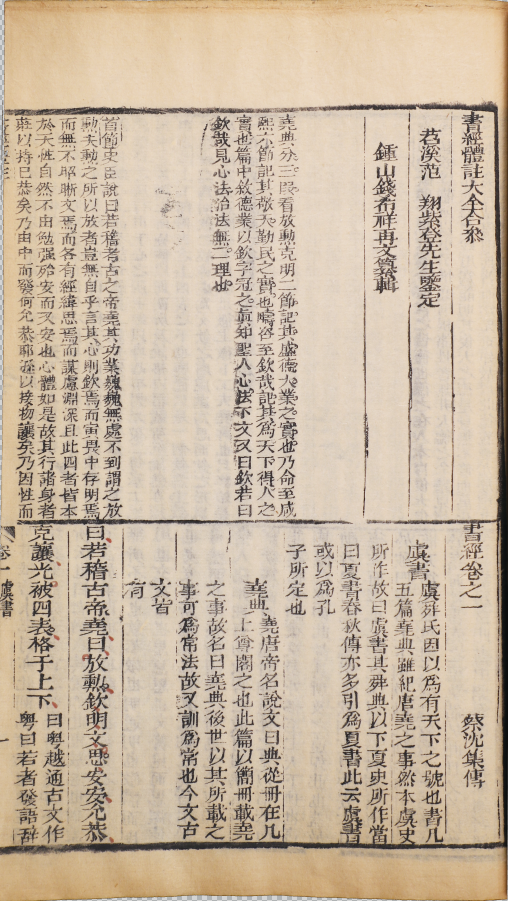 書經體註大全合參
苕溪范 翔紫登先生鑒定
鍾山錢希祥再文纂輯
堯典分三段看放勳克明二節記其盛德大業之實也乃命至咸
熙六節記其敬天勤民之實也疇咨至欽哉記其為天下得人之
實也篇中敘德業以欽字冠之真知聖人心法下文又曰欽若曰
欽哉見心法治法無二理也
首節史臣說曰若稽考古之帝堯其功業巍巍無處不到謂之放
勳夫勳之所以放者豈無自乎言其心則欽焉而寅畏中存明焉
而無不昭晰文焉而各有經緯思焉而謀慮淵深且此四者皆本
於天性自然不由勉强殆安而又安也心體如是故其行諸身者
莊以持己恭矣乃由中而發何允恭耶遜以接物讓矣乃因性而
書經卷之一 蔡沈集傳
虞書 虞舜氏因以為有天下之號也書凡
五篇堯典雖紀唐堯之事然本虞史
所作故曰虞書其舜典以下夏史所作當
曰夏書春秋傳亦多引為夏書此云虞書
或以為孔
子所定也
堯典 堯唐帝名說文曰典從冊在几
上尊閣之也此篇以簡冊載堯
之事故名曰堯典後世以其所載之
事可為常法故又訓為常也今文古
文皆
有
曰若稽古帝堯曰放勳欽明文思安安允恭
克讓光被四表格于上下 曰粵越通古文作
粵曰若者發語辭
卷一 虞書 一